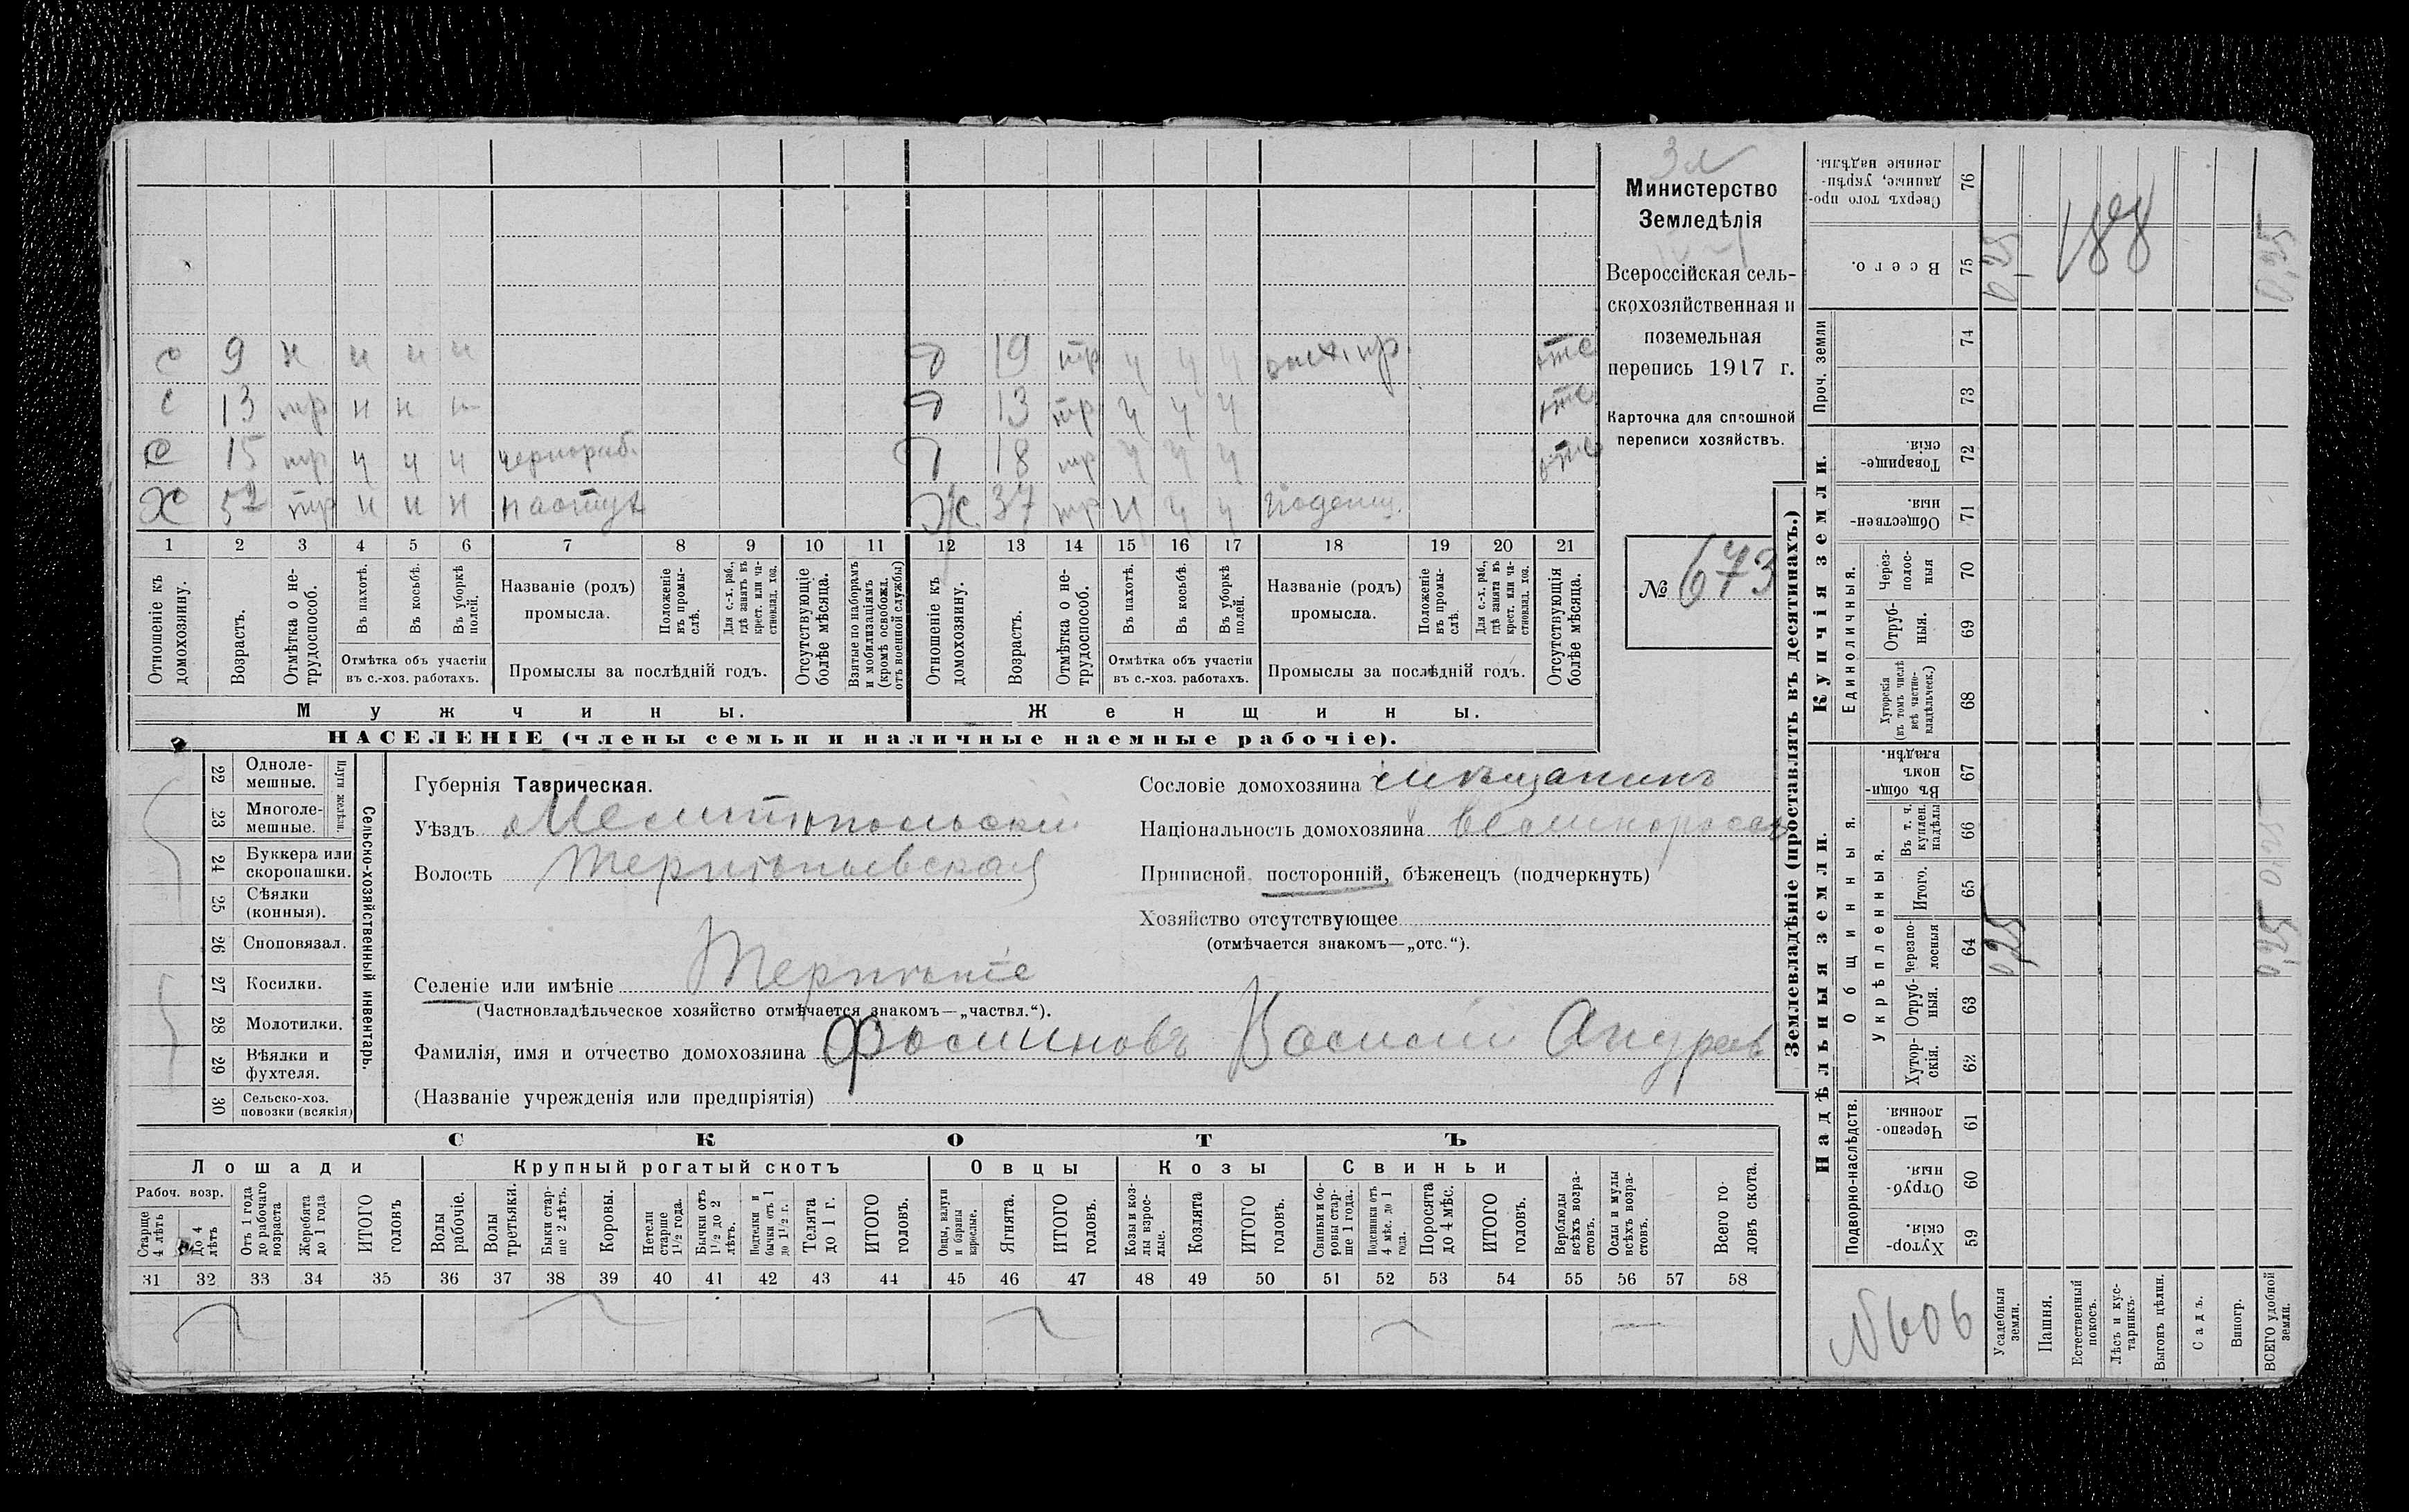 Министерство
Земледѣлія
Всероссійская сель-
скохозяйственная и
поземельная
перепись 1917 г.
Карточка для сплошной
переписи хозяйствъ.
№ 673
с 9 н н н н
с 13 тр н н н
с 15 тр ч ч ч чернораб.
Х 52 тр н н н пастух
19 тр ч ч ч отс
13 тр ч ч ч отс
18 тр ч ч ч отс
Ж 37 тр ч ч ч поденщ.
1 2 3 4 5 6 7 8 9 10 11 12 13 14 15 16 17 18 19 20 21
Отношеніе къ домохозяину.
Возрастъ.
Отмѣтка о не-трудоспособ.
Въ пахотѣ.
Въ косьбѣ.
Въ уборкѣ полей.
Отмѣтка объ участіи
въ с.-хоз. работахъ.
Названіе (родъ)
промысла.
Положеніе въ промы-слѣ.
Для с.-х. раб., гдѣ занятъ въ крест. или ча-стновлад. хоз.
Промыслы за послѣдній годъ.
Отсутствующіе болѣе мѣсяца.
Взятые по наборамъ и мобилизаціямъ (кромѣ освобожд. отъ военной службы)
Отношеніе къ домохозяину.
Возрастъ.
Отмѣтка о не-трудоспособ.
Въ пахотѣ.
Въ косьбѣ.
Въ уборкѣ полей.
Отмѣтка объ участіи
въ с.-хоз. работахъ.
Названіе (родъ)
промысла.
Положеніе въ промы-слѣ.
Для с.-х. раб., гдѣ занята въ крест. или ча-стновлад. хоз.
Промыслы за послѣдній годъ.
Отсутствующія болѣе мѣсяца.
Мужчины.
Женщины.
НАСЕЛЕНІЕ (члены семьи и наличные наемные рабочіе).
22 Однолемешные.
23 Многолемешные.
Плуги желѣзн.
24 Буккера или скоропашки.
25 Сѣялки (конныя).
26 Сноповязал.
27 Косилки.
28 Молотилки.
29 Вѣялки и фухтеля.
30 Сельско-хоз. повозки (всякія)
Сельско-хозяйственный инвентарь.
Губернія Таврическая.
Уѣздъ Мелитопольскій
Волость Терпѣньевская
Селеніе или имѣніе Терпѣніе
(Частновладѣльческое хозяйство отмѣчается знакомъ—„частвл.“).
Фамилія, имя и отчество домохозяина Фоминовъ Василій Андреев
(Названіе учрежденія или предпріятія)
Сословіе домохозяина мѣщанинъ
Національность домохозяина великоросс
Приписной, посторонній, бѣженецъ (подчеркнуть)
Хозяйство отсутствующее
(отмѣчается знакомъ—„отс.“).
СКОТЪ
Лошади
Крупный рогатый скотъ
Овцы
Козы
Свиньи
Рабоч. возр.
Старше 4 лѣтъ
До 4 лѣтъ
Отъ 1 года до рабочаго возраста
Жеребята до 1 года
ИТОГО головъ
Волы рабочіе.
Волы третьяки.
Быки стар-ше 2 лѣтъ.
Коровы.
Нетели старше 1½ года.
Бычки отъ 1½ до 2 лѣтъ.
Подтелки и бычки отъ 1 до 1½ г.
Телята до 1 г.
ИТОГО головъ.
Овцы, валухи и бараны взрослые.
Ягнята.
ИТОГО головъ.
Козы и коз-лы взрос-лые.
Козлята
ИТОГО головъ.
Свиньи и бо-ровы стар-ше 1 года.
Подсвинки отъ 4 мѣс. до 1 года.
Поросята до 4 мѣс.
ИТОГО головъ.
Верблюды всѣхъ возра-стовъ.
Ослы и мулы всѣхъ возра-стовъ.
Всего го-ловъ скота.
31 32 33 34 35 36 37 38 39 40 41 42 43 44 45 46 47 48 49 50 51 52 53 54 55 56 57 58
Землевладѣніе (проставлять въ десятинахъ.)
Сверхъ того про-данные, укрѣп-ленные надѣлы. 76
Всего. 75
0,25
188
Проч. земли
74
73
Купчія земли.
Товарище-скія. 72
Обществен-ныя. 71
Единоличныя.
Через-полос-ныя 70
Отруб-ныя. 69
Хуторскія (въ томъ числѣ всѣ частно-владѣльческ.) 68
Надѣльныя земли.
Общинныя.
Въ общин-номъ владѣн. 67
Укрѣпленныя.
Въ т. ч. куплен. надѣлы 66
Итого. 65
Черезпо-лосныя 64
025
Отруб-ныя. 63
Хутор-скія. 62
Подворно-наслѣдств.
Черезпо-лосныя. 61
Отруб-ныя. 60
Хутор-скія. 59
№606
Усадебныя земли.
Пашня.
Естественный покосъ.
Лѣсъ и кус-тарникъ.
Выгонъ цѣлин.
Садъ.
Виногр.
ВСЕГО удобной земли.